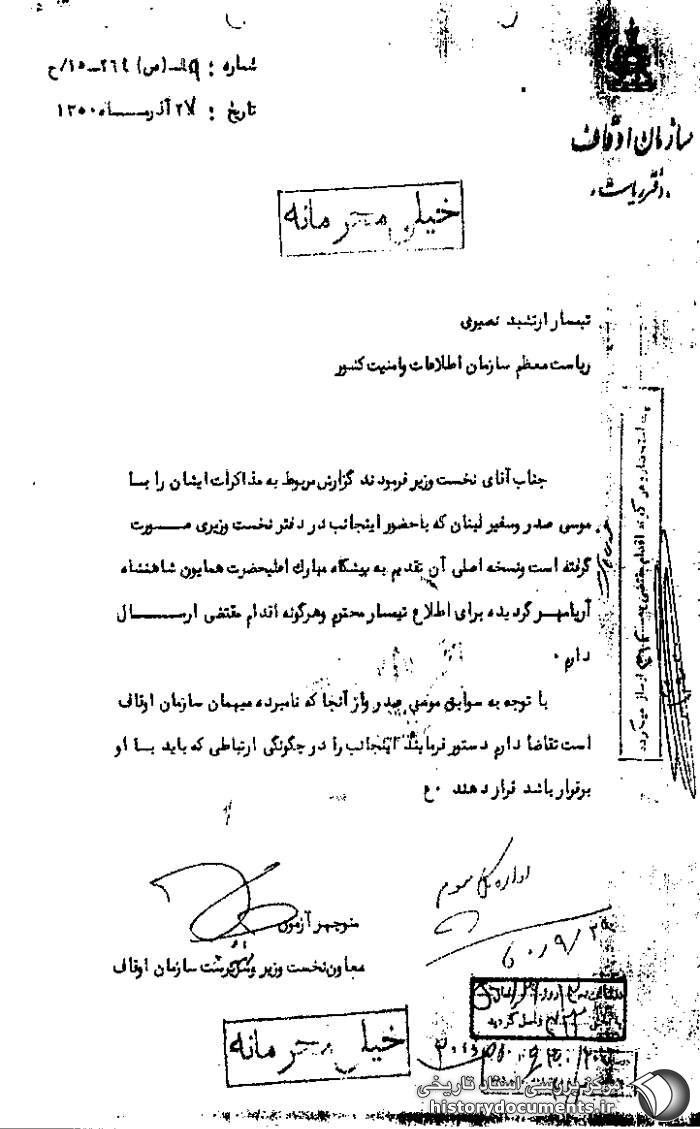 شماره : ۹۵-(ص) ۲۶۴-۱۵/ح
تاریخ : ۲۷ آذرماه ۱۳۵۰
سازمان اوقاف
دفتر ریاست
خیلی محرمانه
تیمسار ارتشبد نصیری
ریاست معظم سازمان اطلاعات وامنیت کشور
جناب آقای نخست وزیر فرمودند گزارش مربوط به مذاکرات ایشان را با
موسی صدر وسفیر لبنان که باحضور اینجانب در دفتر نخست وزیری صورت
گرفته است ونسخه اصلی آن تقدیم به پیشگاه مبارک اعلیحضرت همایون شاهنشاه
آریامهر گردیده برای اطلاع تیمسار محترم وهرگونه اقدام مقتضی ارسال
دارم ۰
با توجه به سوابق موسی صدر واز آنجا که نامبرده میهمان سازمان اوقاف
است تقاضا دارم دستور فرمایند اینجانب را در چگونگی ارتباطی که باید با او
برقرار باشد قرار دهند ۰ع
اداره کل سوم
۵۰/۹/۲۹
منوچهر آزمون
معاون نخست وزیر وسرپرست سازمان اوقاف
خیلی محرمانه
مرکز بررسی اسناد تاریخی
historydocuments.ir